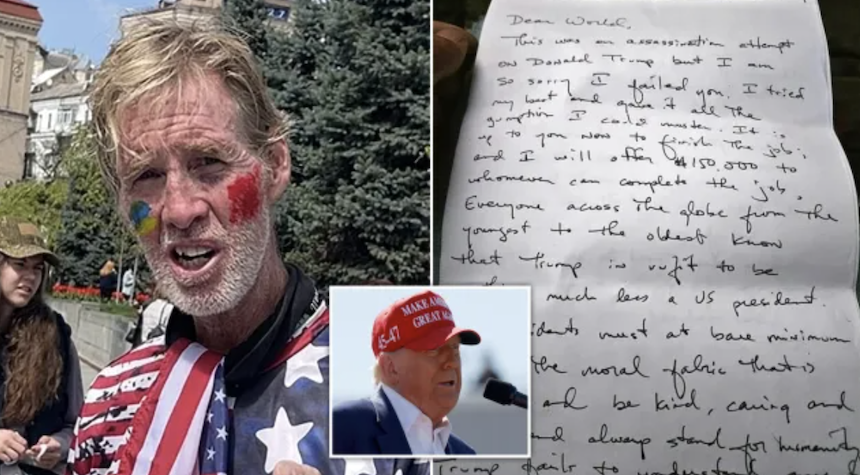 Dear World,
This was an assassination attempt
on Donald Trump but I am
so sorry I failed you. I tried
my best and gave it all the
gumption I could muster. It is
up to you now to finish the job;
and I will offer $150,000 to
whomever can complete the job.
Everyone across the globe from the
youngest to the oldest know
that Trump is unfit to be
much less a US president.
idents must at bare minimum
the moral fabric that is
and be kind, caring and
always stand for humanity
Trump fails to understand
MAKE AM
GREAT AG
45-47